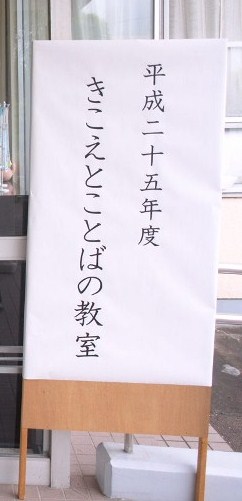 平成二十五年度
きこえとことばの教室